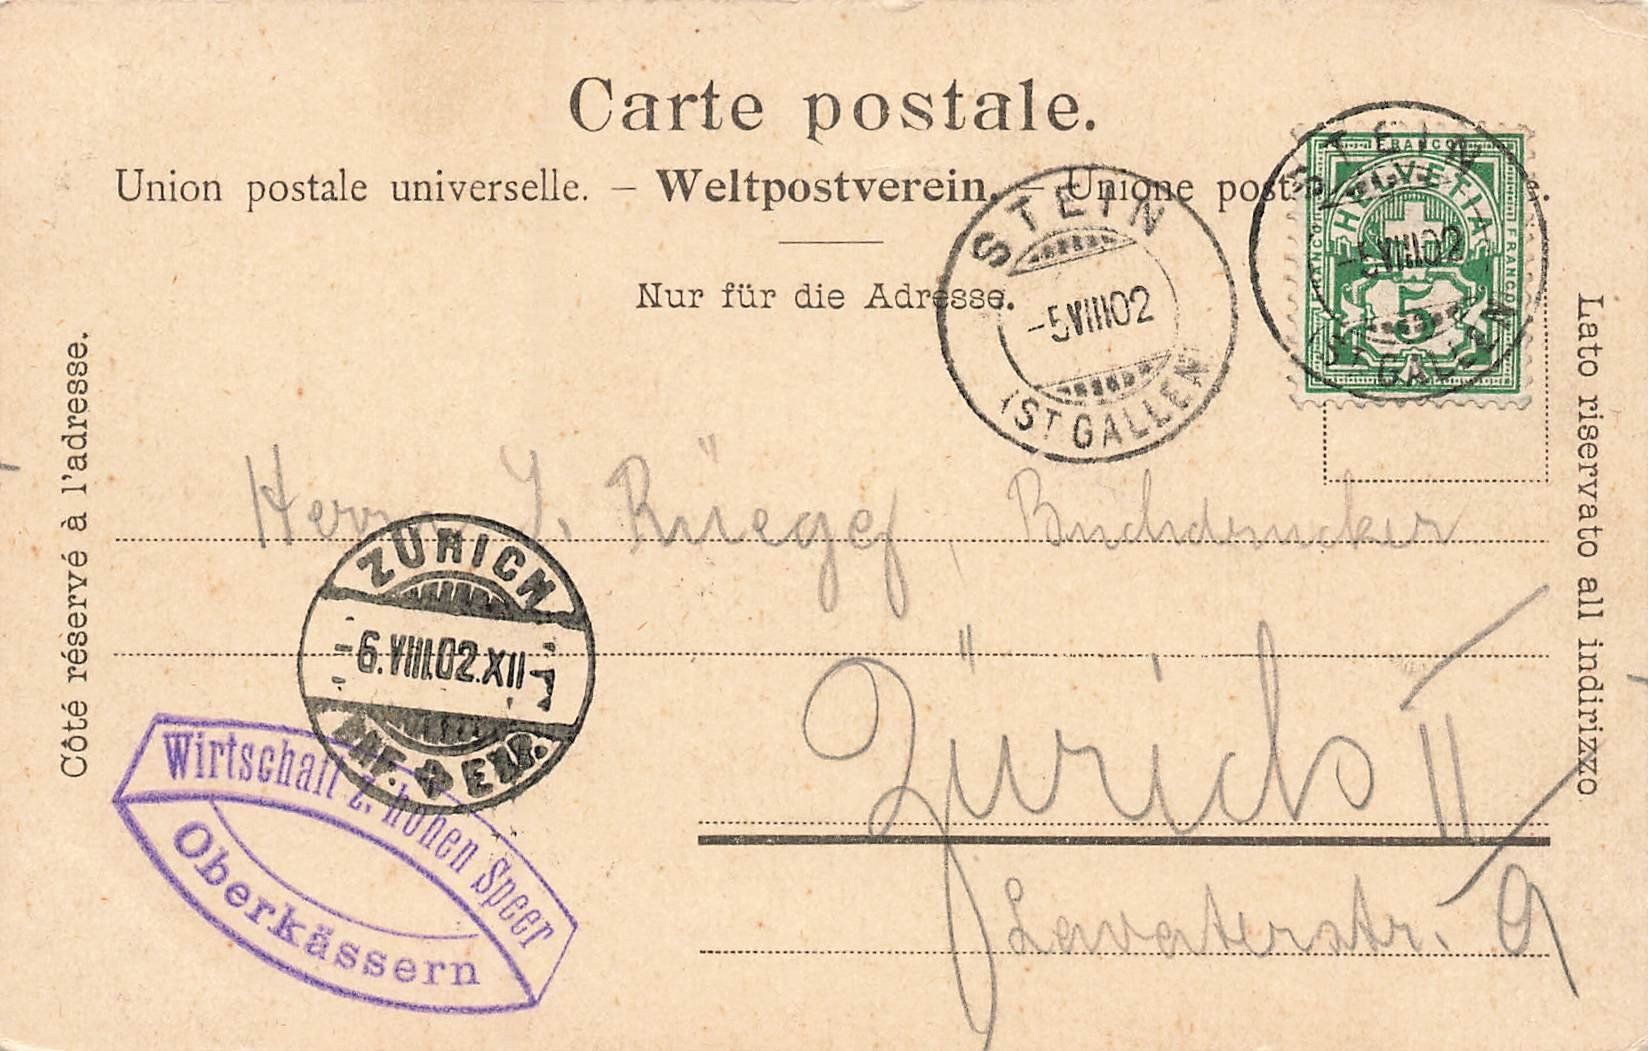 Carte postale.
Union postale universelle. – Weltpostverein. – Unione post
Nur für die Adresse.
Côté réservé à l'adresse.
Lato riservato all indirizzo
FRANCO
HELVETIA
FRANCO
FRANCO
5
STEIN
-5 VIII 02
ST GALLEN
STEIN
-5 VIII 02
(ST GALLEN)
Herrn J. Rüegg, Buchdrucker
Zürich II
Lavaterstr. 9
ZÜRICH
-6.VIII.02.XII-
BRF. EXP.
Wirtschaft z. hohen Speer
Oberkässern